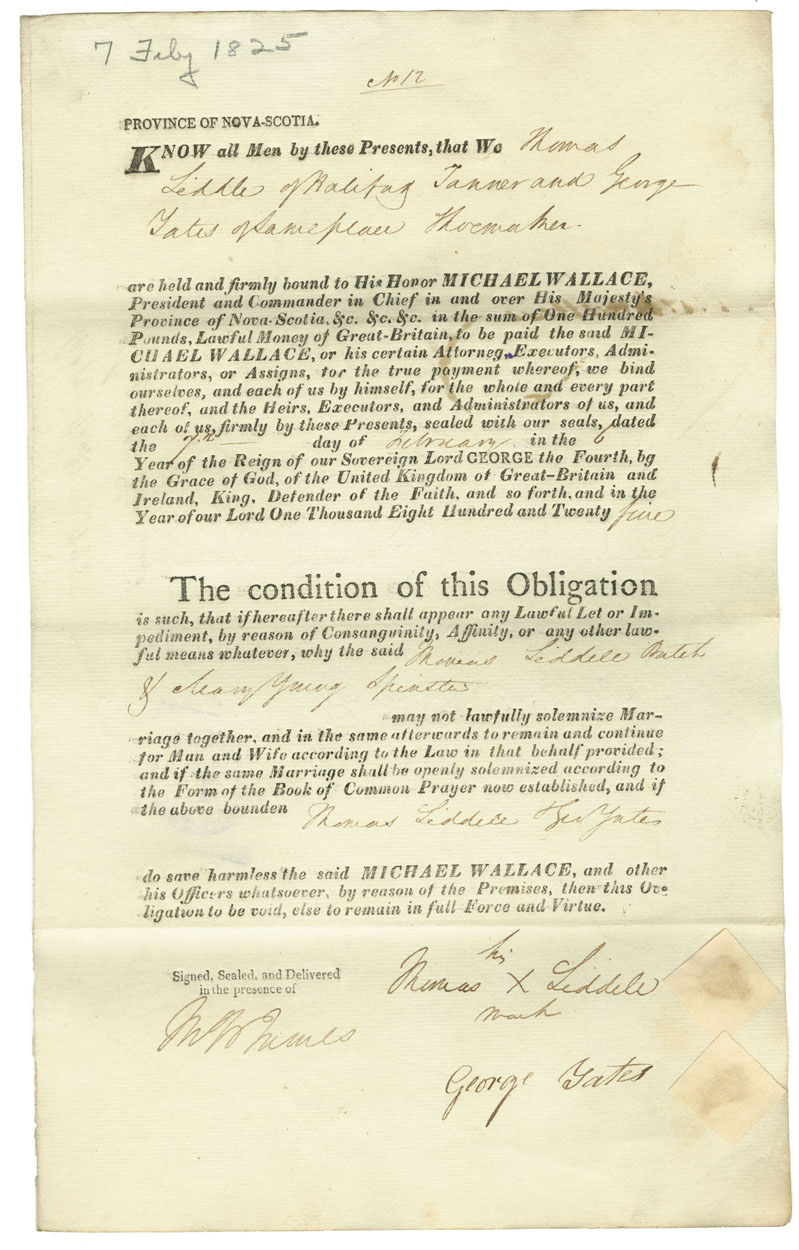 7 Feby 1825
No 12
PROVINCE OF NOVA-SCOTIA.
KNOW all Men by these Presents, that We Thomas
Liddle of Halifax Tanner and George
Yates of same place Shoemaker.
are held and firmly bound to His Honor MICHAEL WALLACE,
President and Commander in Chief in and over His Majesty's
Province of Nova-Scotia, &c. &c. &c. in the sum of One Hundred
Pounds, Lawful Money of Great-Britain, to be paid the said MI-
CHAEL WALLACE, or his certain Attorney, Executors, Admi-
nistrators, or Assigns, for the true payment whereof, we bind
ourselves, and each of us by himself, for the whole and every part
thereof, and the Heirs, Executors, and Administrators of us, and
each of us, firmly by these Presents, sealed with our seals, dated
the 7th day of February in the 6
Year of the Reign of our Sovereign Lord GEORGE the Fourth, by
the Grace of God, of the United Kingdom of Great-Britain and
Ireland, King, Defender of the Faith, and so forth, and in the
Year of our Lord One Thousand Eight Hundred and Twenty five
The condition of this Obligation
is such, that if hereafter there shall appear any Lawful Let or Im-
pediment, by reason of Consanguinity, Affinity, or any other law-
ful means whatever, why the said Thomas Liddele Batch
& Mary Young Spinster
may not lawfully solemnize Mar-
riage together, and in the same afterwards to remain and continue
for Man and Wife according to the Law in that behalf provided;
and if the same Marriage shall be openly solemnized according to
the Form of the Book of Common Prayer now established, and if
the above bounden Thomas Liddele & Geo Yates
do save harmless the said MICHAEL WALLACE, and other
his Officers whatsoever, by reason of the Premises, then this Ob-
ligation to be void, else to remain in full Force and Virtue.
Signed, Sealed, and Delivered
in the presence of
his
Thomas X Liddele
mark
George Yates